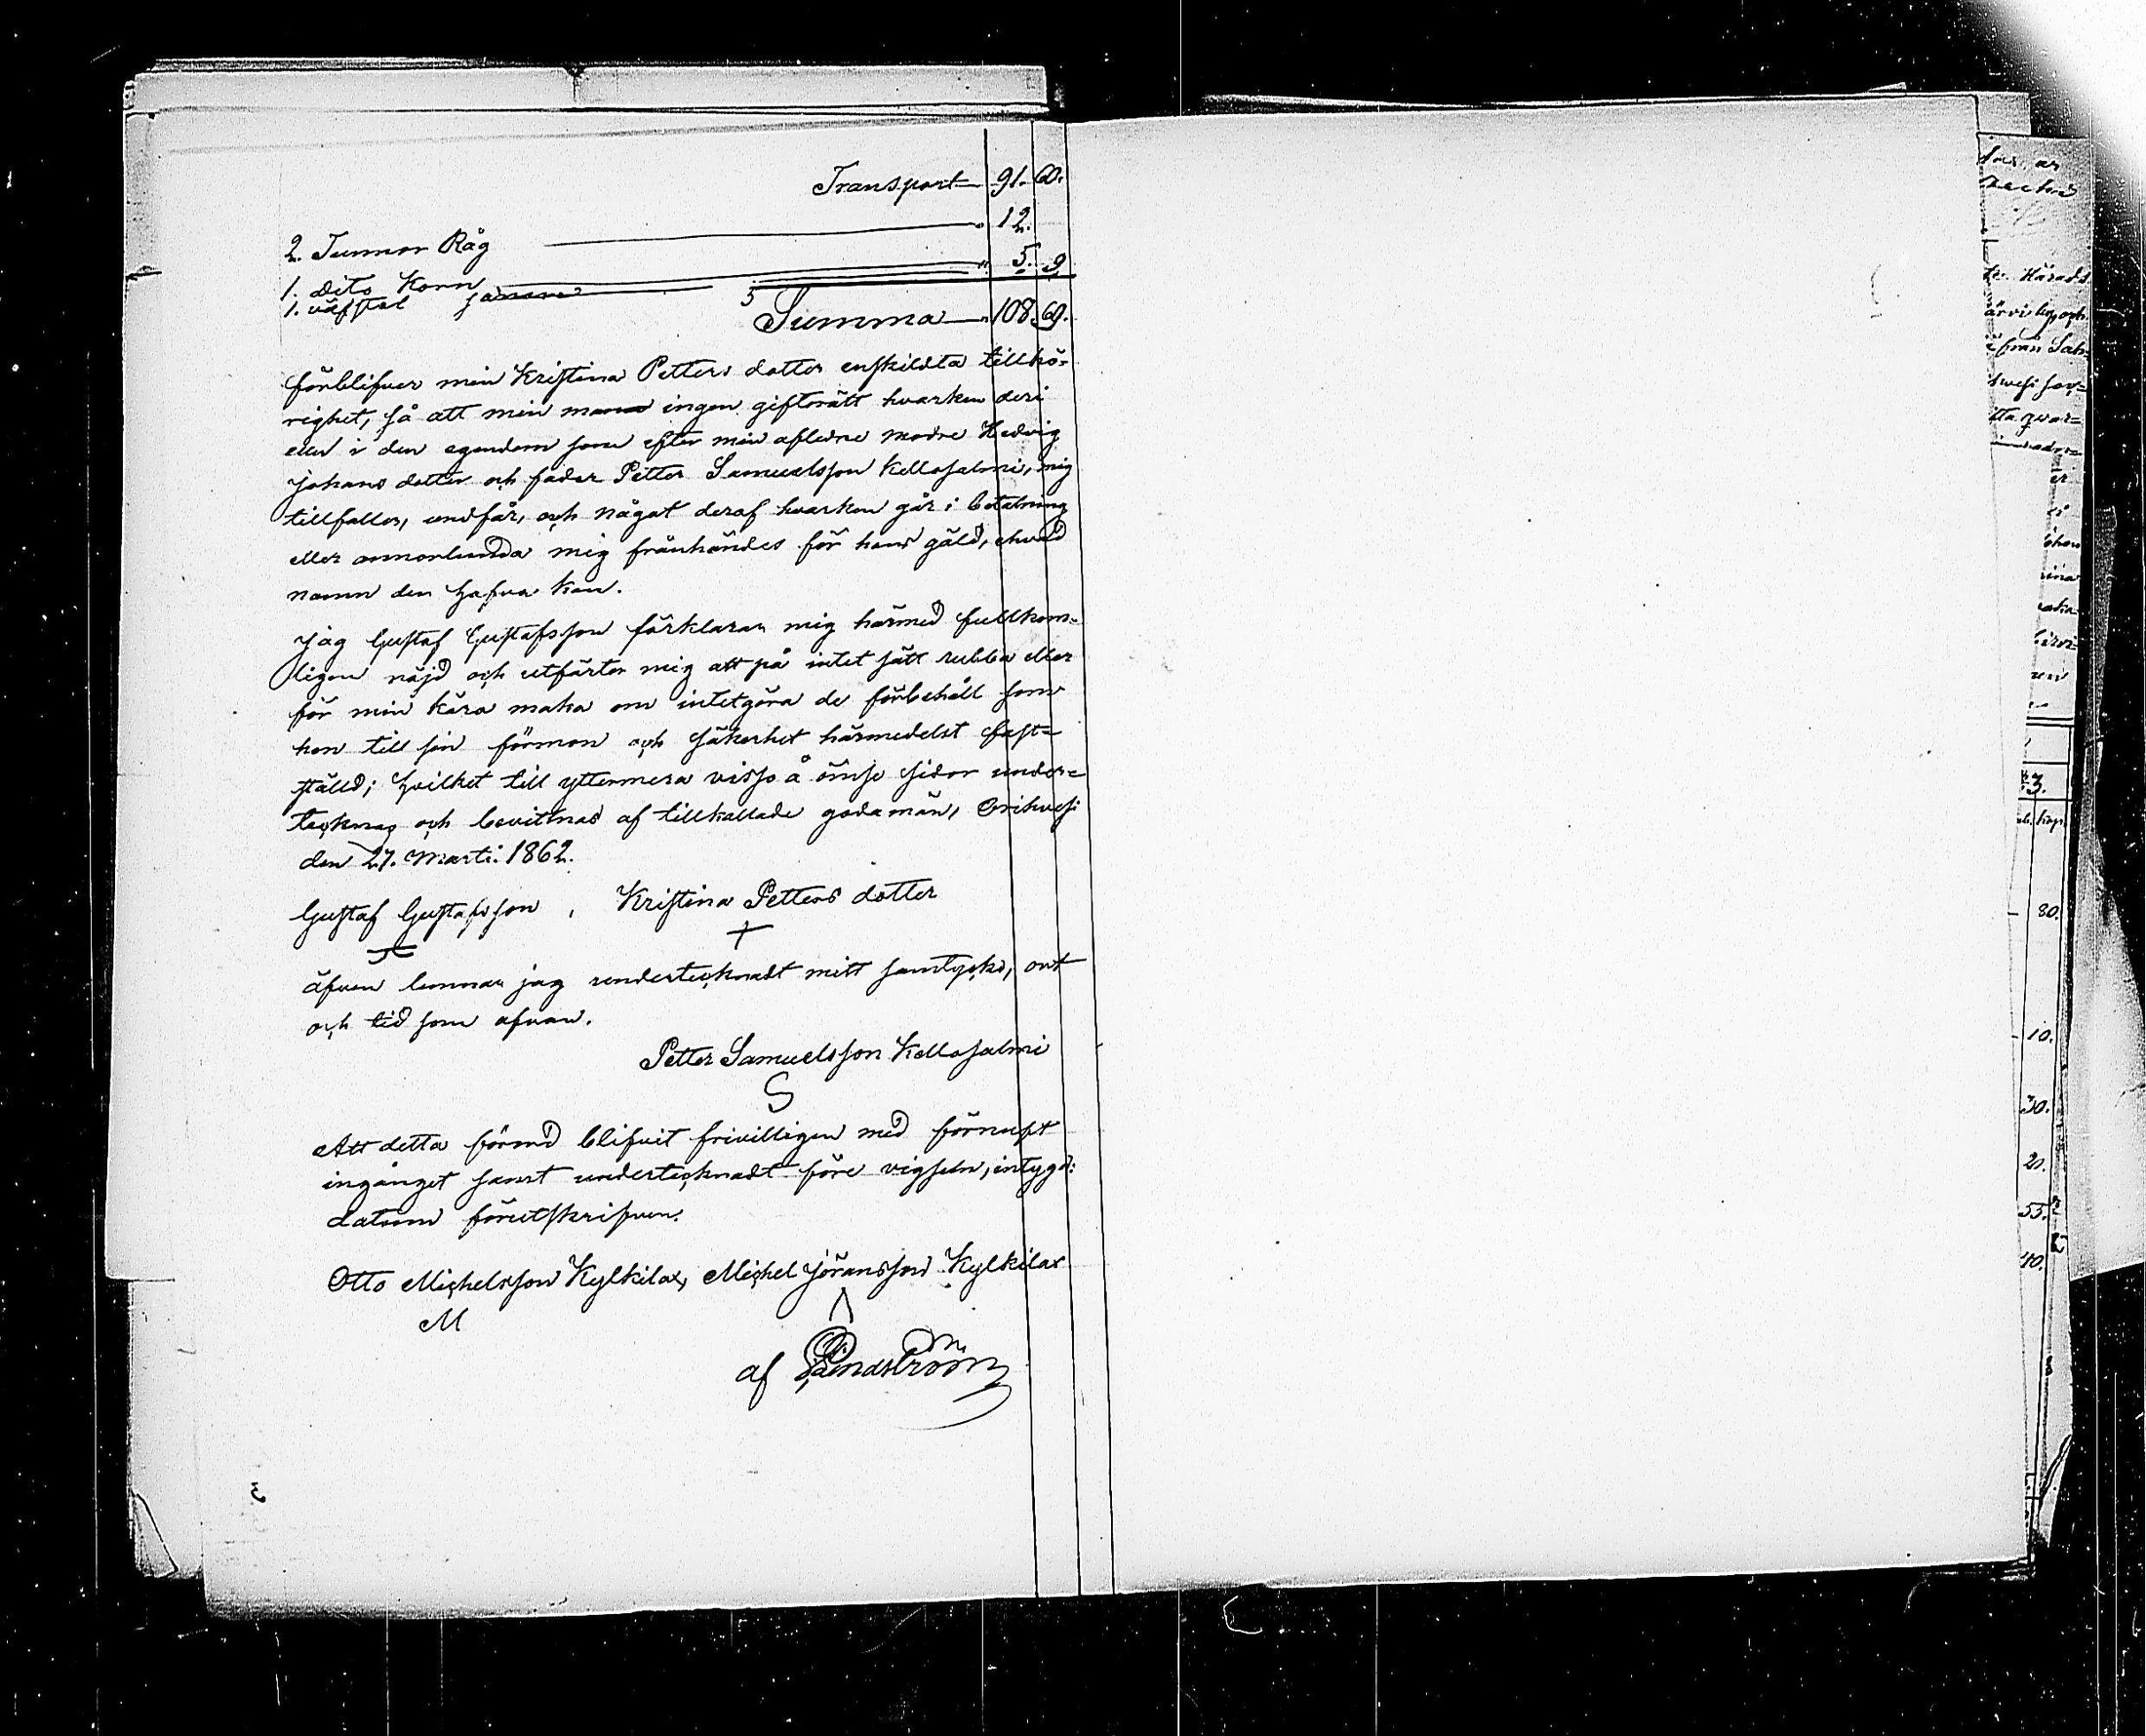 Transport 91. 60.
2. Tunnor Råg " 12.
1. dito Korn " 5. 9
1. väfstol 5
Summa " 108. 69.
förblifver min Kristina Petters dotter enskildta tillhö-
righet, så att min mans ingen giftorätt hvarken deri
eller i den egendom som efter min aflidne modre Hedvig
Johans dotter och fader Petter Samuelsson Kellosalmi, mig
tillfaller, undfår, och något deraf hvarken går i betalning
eller annorlunda mig fränhändes för hans gäld, ehvad
namn den hafva kan.
Jag Gustaf Gustafsson förklarar mig härmed fullkom-
ligen nöjd och utfärter mig att på intet sätt rubba eller
för min kära maka om intetgöra de förbehåll som
hon till sin förmon och säkerhet härmedelst fast-
ställd; hvilket till yttermera visso å ömse sidor under-
tecknas och bevitnas af tillkallade godamän, Orihvesi
den 27. Marti. 1862.
Gustaf Gustafsson, Kristina Petters dotter
äfven lemnar jag undertecknadt mitt samtycke, ort
och tid som ofvan.
Petter Samuelsson Kellosalmi
S
Att detta förord blifvit frivilligen med förnuft
ingånget samt undertecknadt före vigseln, intyga:
datum förutskrifven.
Otto Michelsson Kylkilax, Michel Jöransson Kylkilax
M Λ
af Lindström
3
tr. Härads
ärvi
ifrån
80.
10.
30.
20.
55.
40.